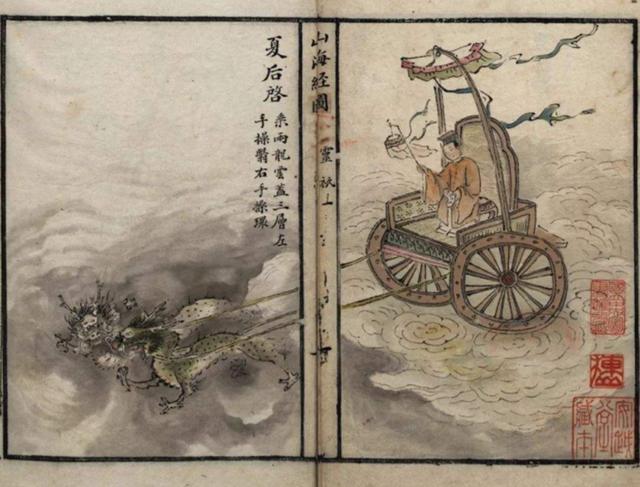 山海經圖
靈祇上
夏后啓
乘兩龍雲蓋三層左
手操翳右手操環